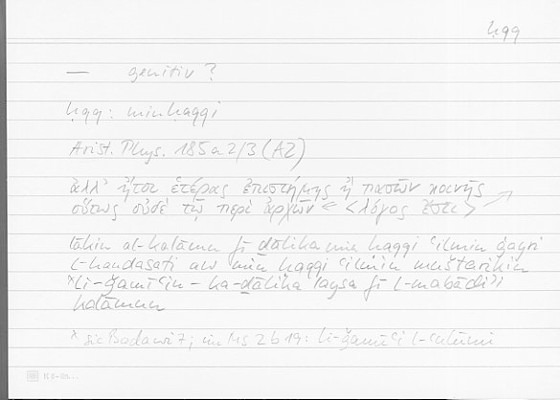 ḥqq
— genitiv?
ḥqq: min ḥaqqi
Arist. Phys. 185 a 2/3 (AZ)
ἀλλ' ἤτοι ἑτέρας ἐπιστήμης ἢ πασῶν κοινῆς
οὕτως οὐδὲ τῷ περὶ ἀρχῶν ← <λόγος ἔστι>
lākin al-kalāmu fī ḏālika min ḥaqqi ʿilmin ġayri
l-handasati aw min ḥaqqi ʿilmin muštarikin
*li-ǧamīʿin – ka-ḏālika laysa fī l-mabādiʾi
kalāmun
* sic Badawi 7; im Ms 2b19: li-ǧamīʿi l-ʿulūmi